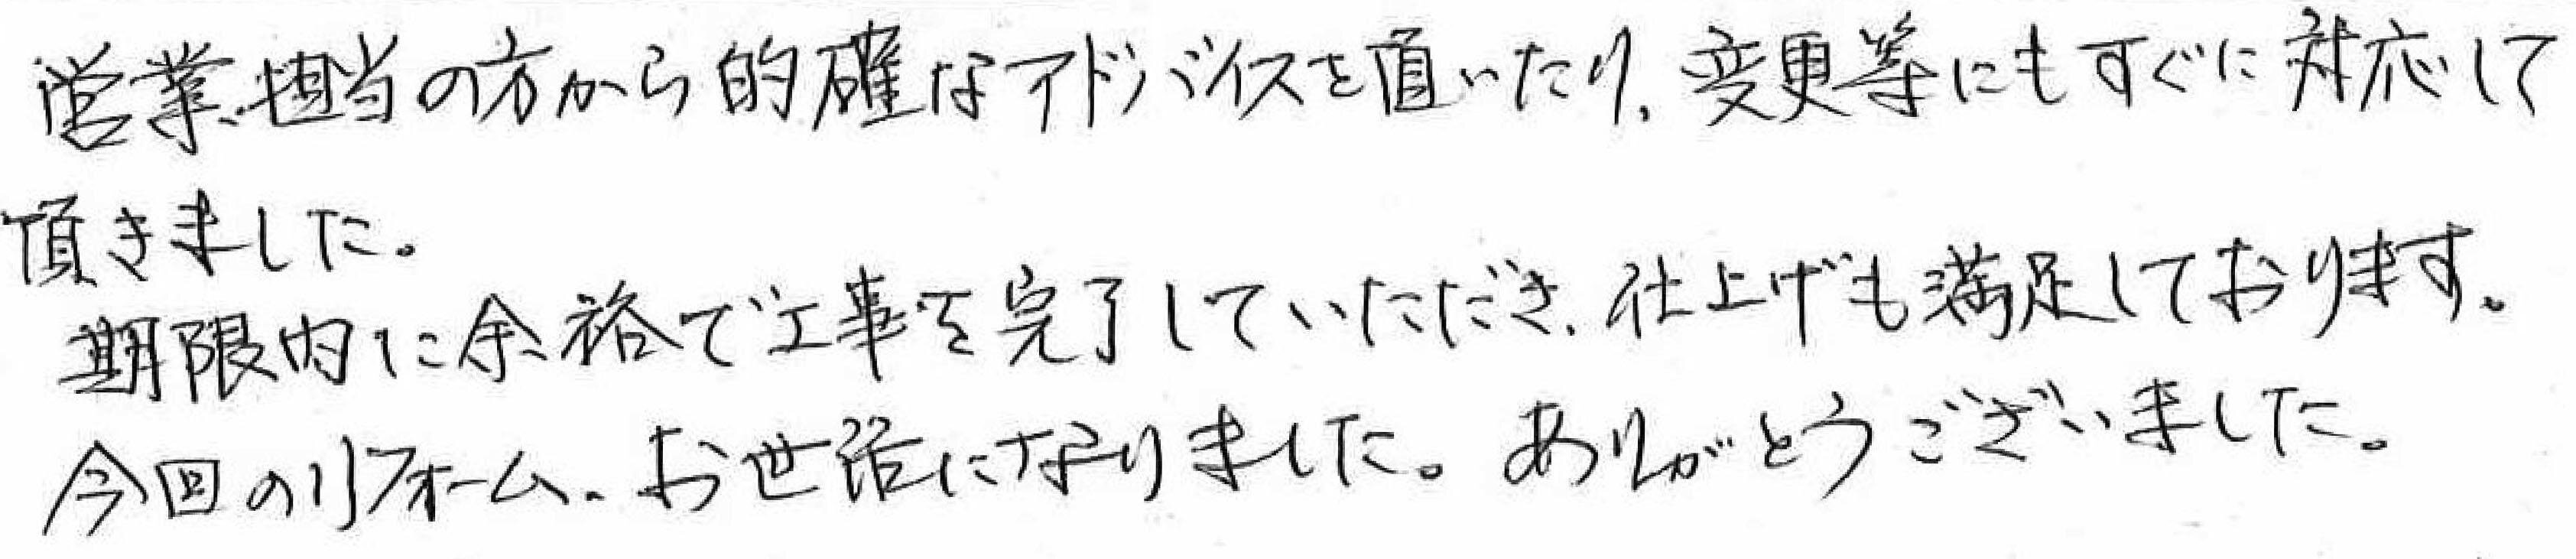 営業担当の方から的確なアドバイスを頂いたり、変更等にもすぐに対応して
頂きました。
期限内に余裕で工事を完了していただき、仕上げも満足しております。
今回のリフォーム、お世話になりました。ありがとうございました。